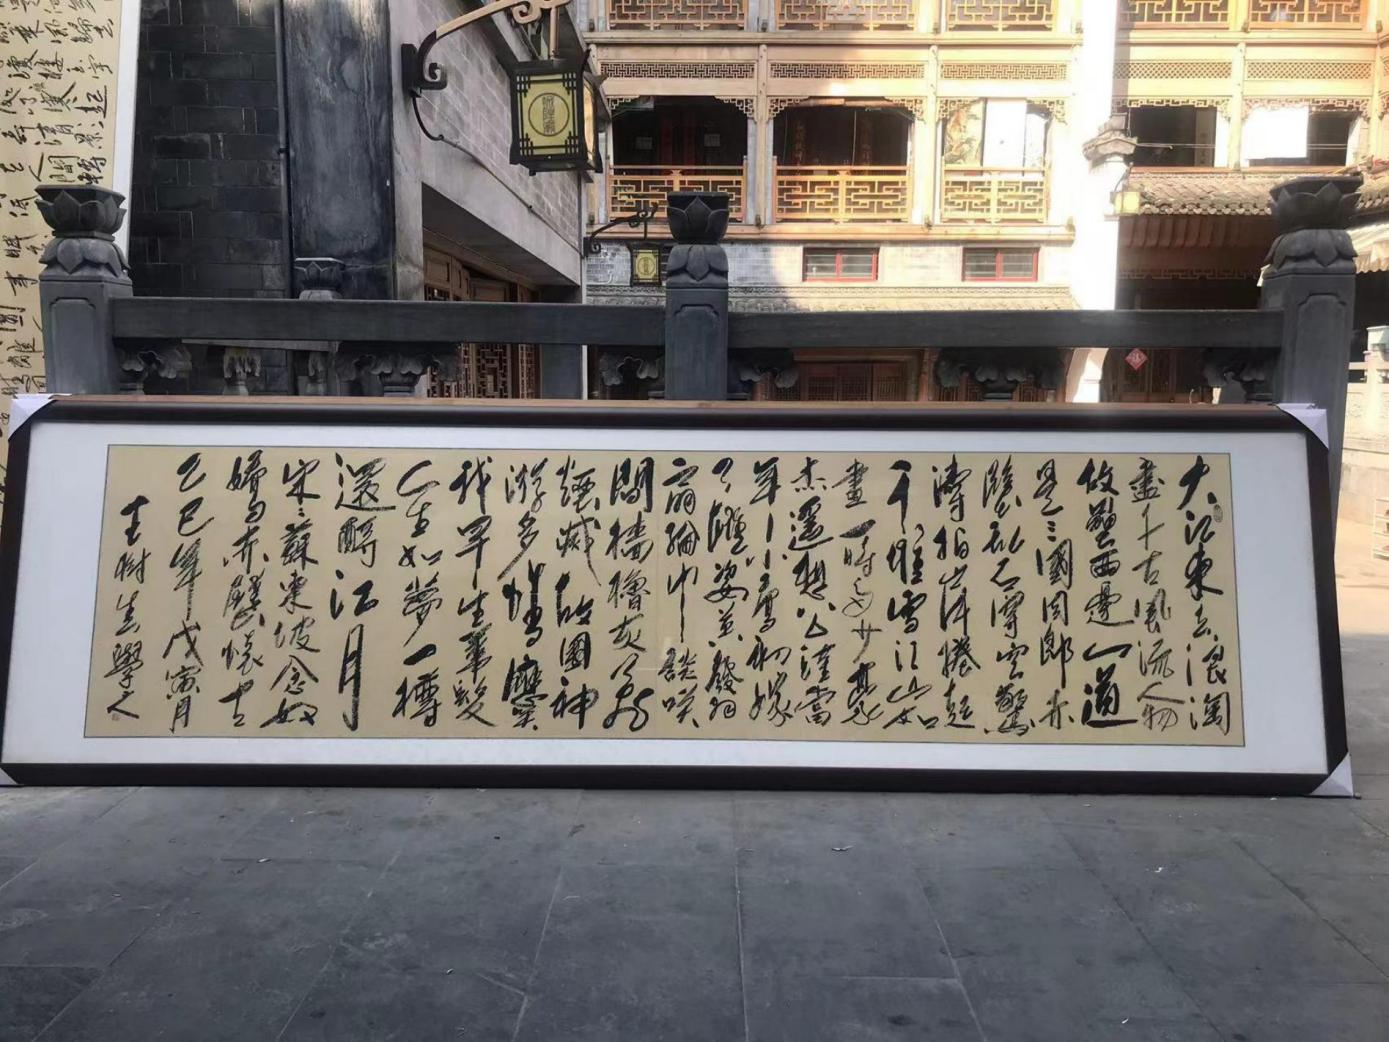 大江東去浪淘
盡千古風流人物
故壘西邊人道
是三國周郎赤
壁亂石穿空驚
濤拍岸捲起
千堆雪江山如
畫一時多少豪
杰遥想公瑾當
年小喬初嫁
了雄姿英發羽
扇綸巾談笑
間檣櫓灰飛
煙滅故國神
游多情應笑
我早生華髮
人生如夢一樽
還酹江月
宋蘇東坡念奴
嬌句赤壁懷古
乙巳年戊寅月
王樹生學